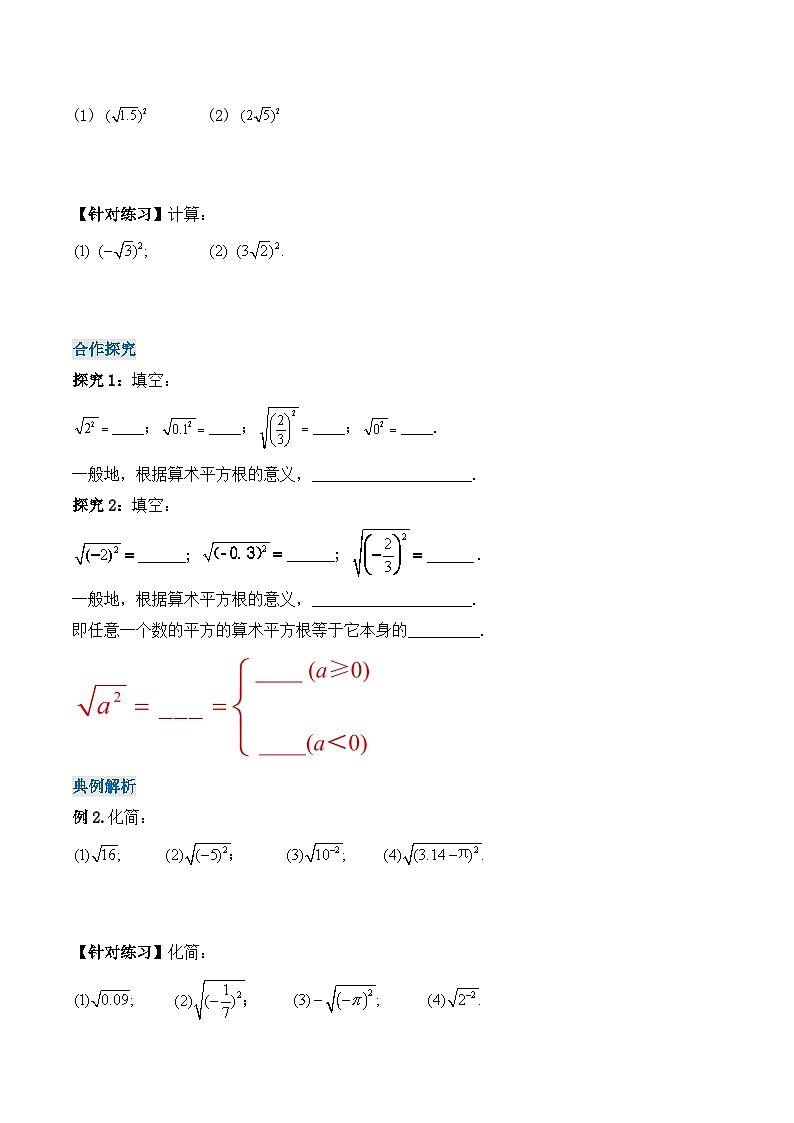 (1) (√1.5)² (2) (2√5)²
【针对练习】计算：
(1) (−√3)²; (2) (3√2)².
合作探究
探究 1：填空：
√(2²) = ____； √(0.1²) = ____； √((2/3)²) = ____； √(0²) = ____.
一般地，根据算术平方根的意义，____________________.
探究 2：填空：
√((−2)²) = ______； √((-0.3)²) = ______； √((−2/3)²) = ______.
一般地，根据算术平方根的意义，____________________.
即任意一个数的平方的算术平方根等于它本身的_________.
√(a²) = ___ = { ____ (a≥0)
____(a＜0)
典例解析
例 2.化简：
(1)√16; (2)√((−5)²)； (3)√(10⁻²); (4)√((3.14−π)²).
【针对练习】化简：
(1)√0.09; (2)√((−1/7)²)； (3)−√((−π)²); (4)√(2⁻²).